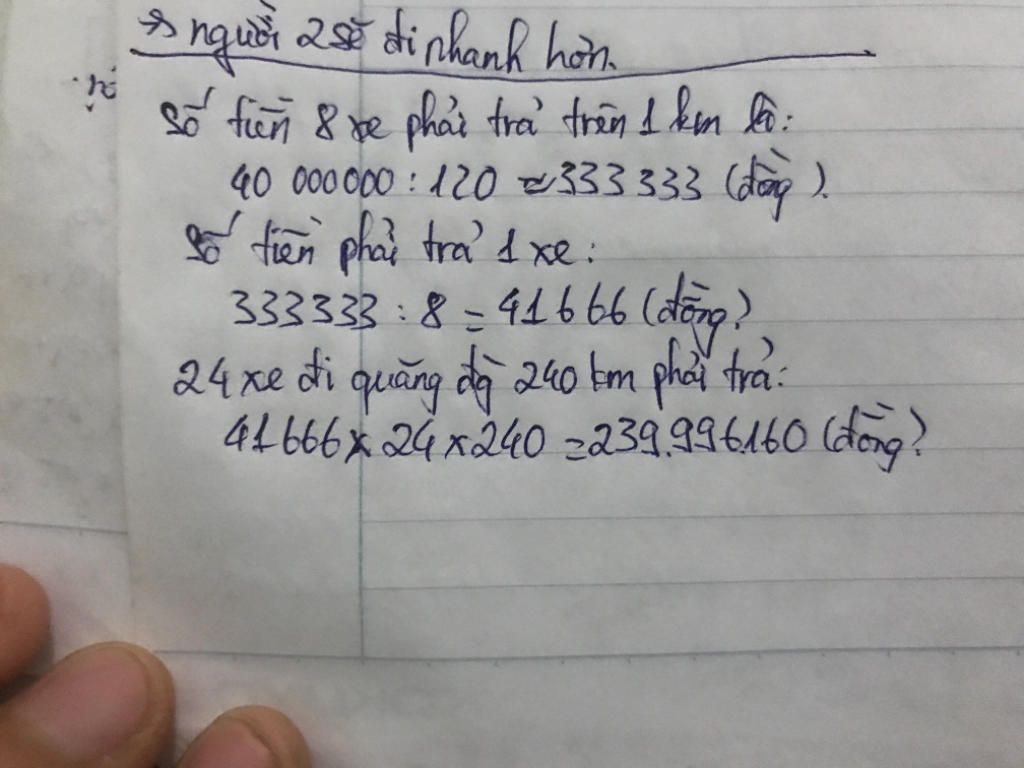 → người 2 sẽ đi nhanh hơn.
Số tiền 8 xe phải trả trên 1 km là:
40 000000 : 120 ≈ 333 333 (đồng).
Số tiền phải trả 1 xe:
333333 : 8 = 41666 (đồng)
24 xe đi quãng đg 240 km phải trả:
41666 x 24 x 240 = 239.996.160 (đồng)